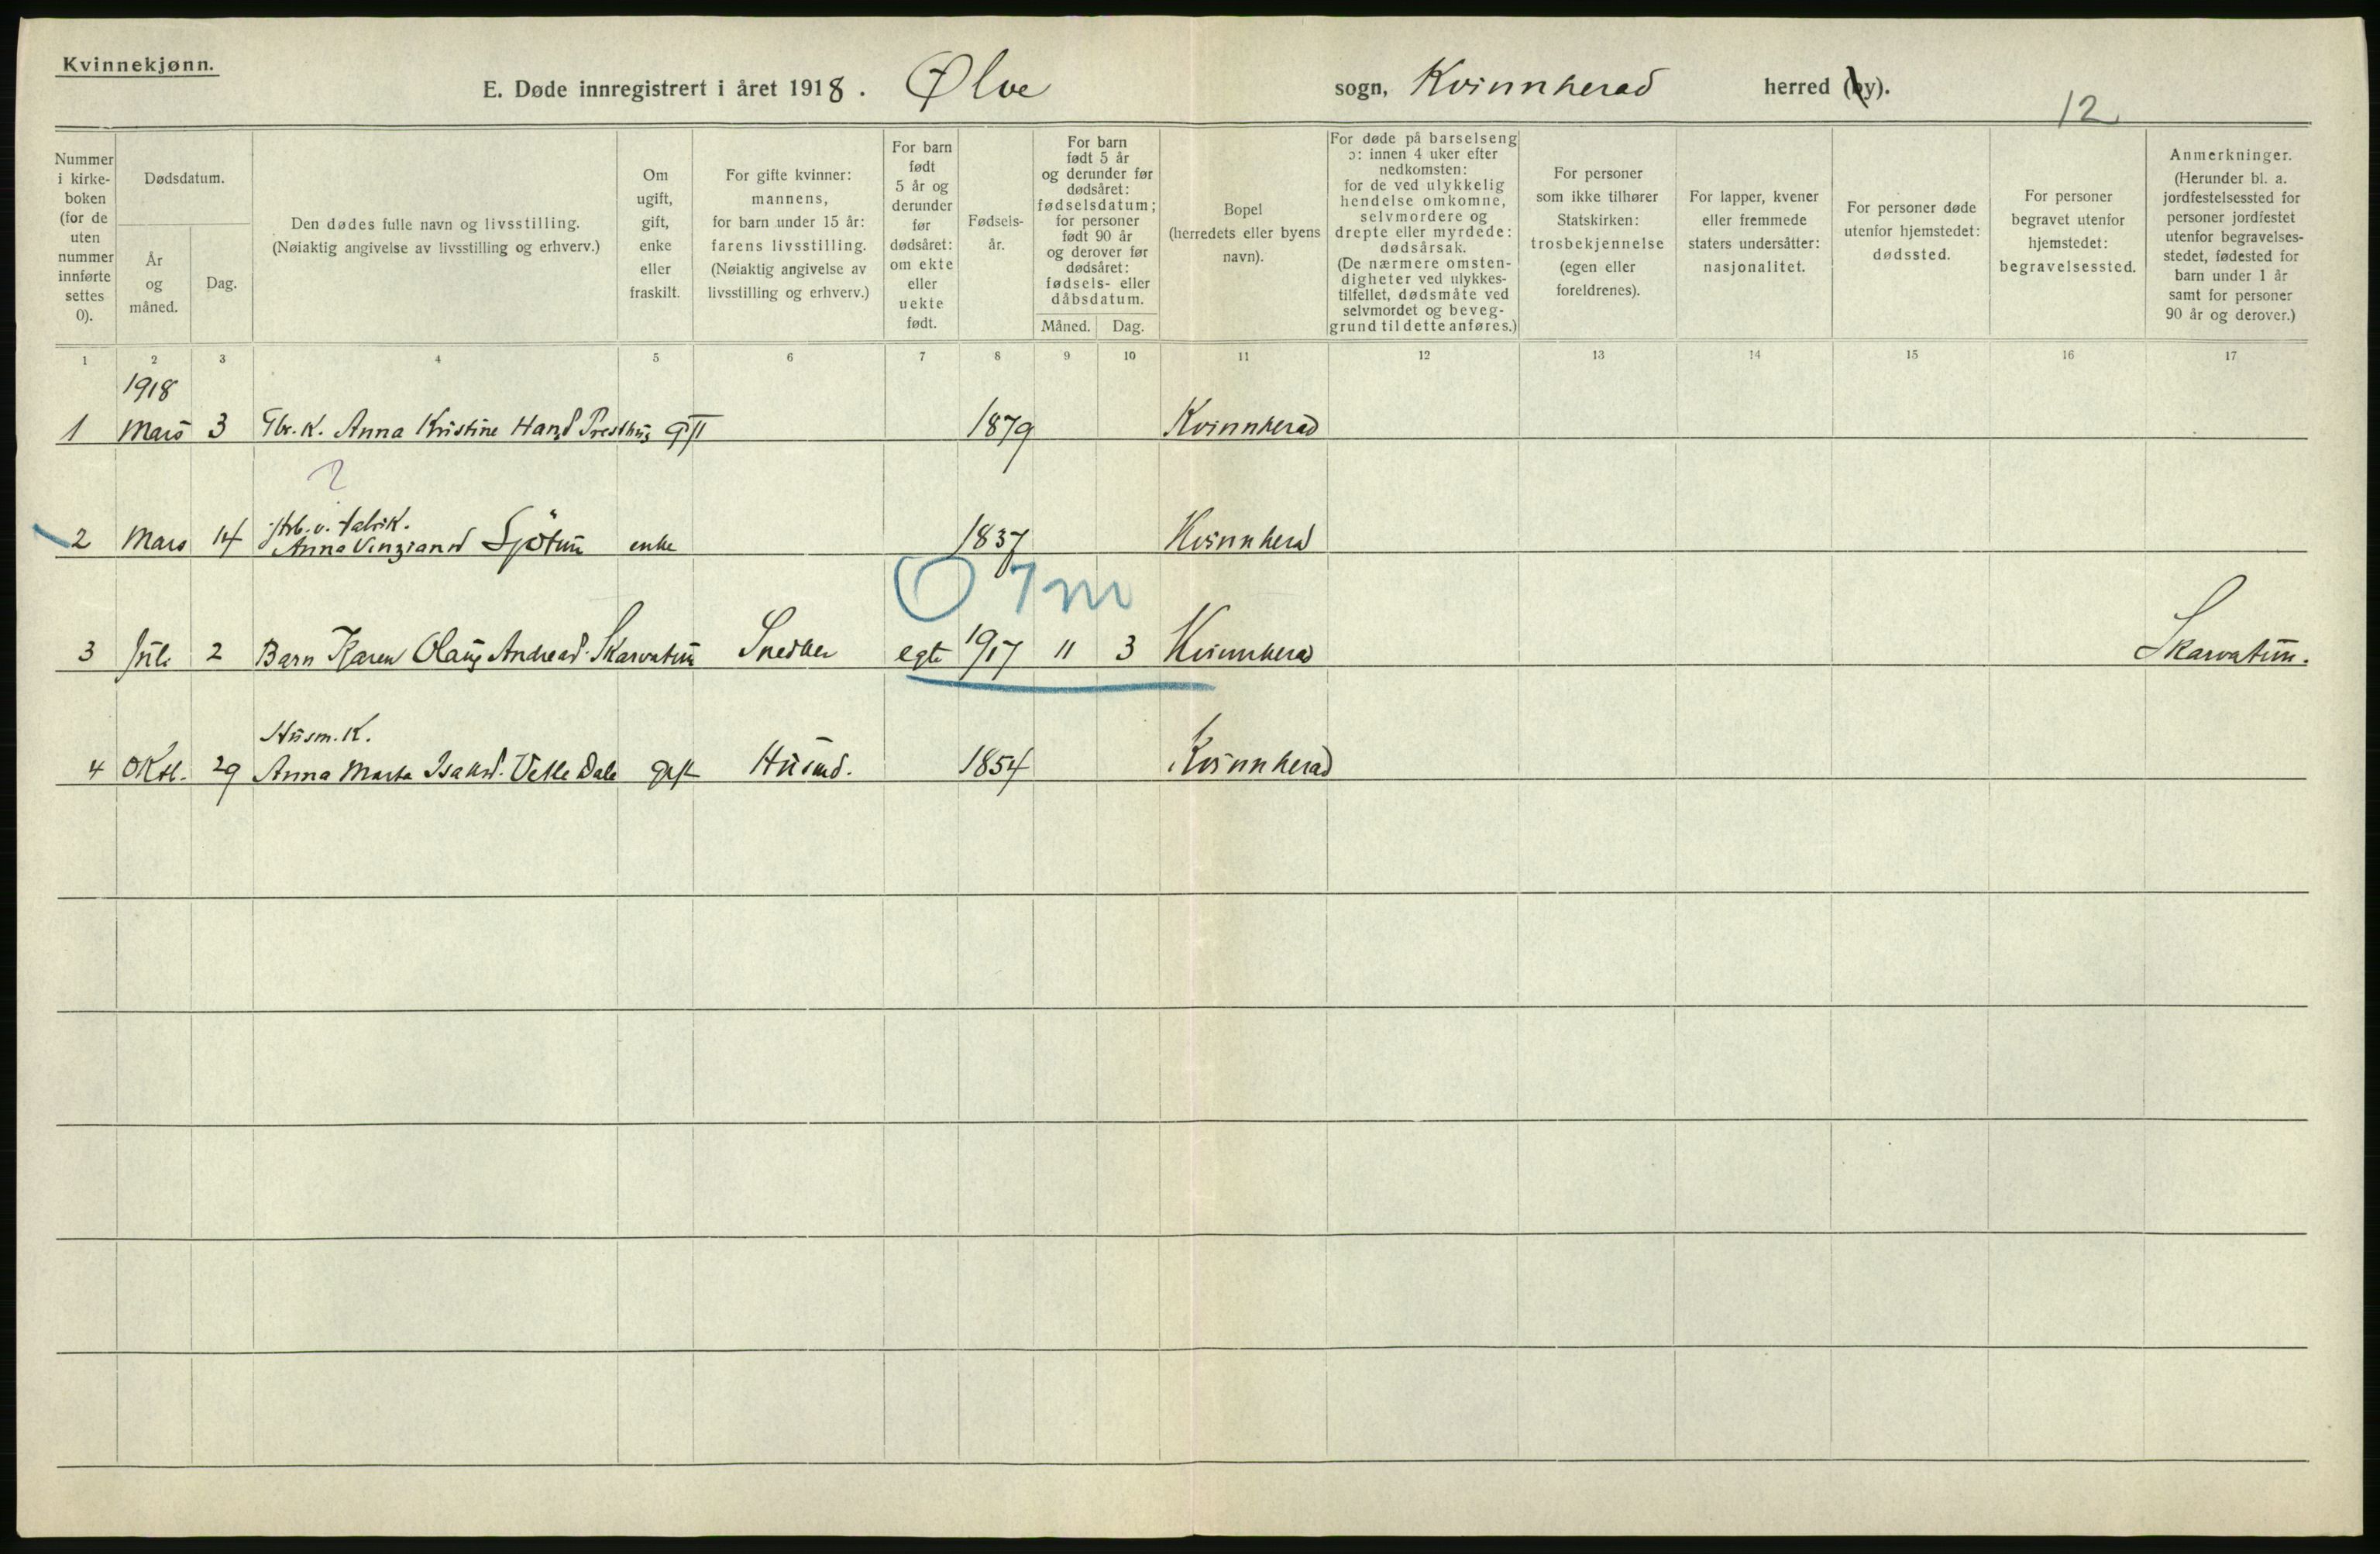 Kvinnekjønn.
E. Døde innregistrert i året 1918. Ølve sogn, Kvinnherad herred (by).
12
Nummer i kirke- boken (for de uten nummer innførte settes 0).
Dødsdatum.
År og måned.
Dag.
Den dødes fulle navn og livsstilling.
(Nøiaktig angivelse av livsstilling og erhverv.)
Om ugift, gift, enke eller fraskilt.
For gifte kvinner: mannens, for barn under 15 år: farens livsstilling. (Nøiaktig angivelse av livsstilling og erhverv.)
For barn født 5 år og derunder før dødsåret: om ekte eller uekte født.
Fødsels- år.
For barn født 5 år og derunder før dødsåret: fødselsdatum; for personer født 90 år og derover før dødsåret: fødsels- eller dåbsdatum.
Måned. Dag.
Bopel (herredets eller byens navn).
For døde på barselseng ɔ: innen 4 uker efter nedkomsten: for de ved ulykkelig hendelse omkomne, selvmordere og drepte eller myrdede: dødsårsak. (De nærmere omsten- digheter ved ulykkes- tilfellet, dødsmåte ved selvmordet og beveg- grund til dette anføres.)
For personer som ikke tilhører Statskirken: trosbekjennelse (egen eller foreldrenes).
For lapper, kvener eller fremmede staters undersåtter: nasjonalitet.
For personer døde utenfor hjemstedet: dødssted.
For personer begravet utenfor hjemstedet: begravelsessted.
Anmerkninger. (Herunder bl. a. jordfestelsessted for personer jordfestet utenfor begravelses- stedet, fødested for barn under 1 år samt for personer 90 år og derover.)
1 2 3 4 5 6 7 8 9 10 11 12 13 14 15 16 17
1918
1 Mars 3 Gbr. K. Anna Kristine Hansd Presthus gift 1879 Kvinnherad
?
fabrik.
2 Mars 14 Anna Sjötun enke 1837 Kvinnherad
0 7 m
3 Juli 2 Barn Karen Olaug Andreasd. Skarvatun Snedker egte 1917 11 3 Kvinnherad Skarvatun.
Husm. K.
4 Okt. 29 Anna Marta Isaksd. Velle Dale gift Husmd. 1854 Kvinnherad